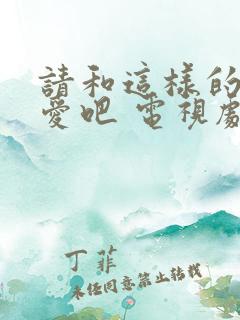 請和這樣的
愛吧 電視劇
丁菲
未经同意禁止转载